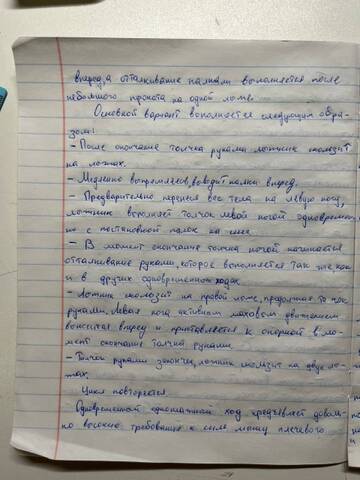 вперед, а отталкивание палками выполняется после
небольшого проката на одной лыже.
Основной вариант выполняется следующим обра-
зом:
- После окончание толчка руками лыжник скользит
на лыжах.
- Медленно выпрямляясь, выводит палки вперед.
- Предварительно перенеся вес тела на левую ногу,
лыжник выполняет толчок левой ногой одновременн
но с постановкой палок на снег.
- В момент окончание толчка ногой начинается
отталкивание руками, которое выполняется так же как
и в других одновременных ходах
- Лыжник скользит на правой лыже, продолжая толчок
руками. Левая нога активным маховым движением
выносится вперед и приставляется к опорной в мо-
мент окончание толчка руками.
- Толчок руками закончен, лыжник скользит на двух лы-
жах.
Цикл повторяется
Одновременный одношажный ход предъявляет доволь-
но высокие требования к силе мышц плечевого